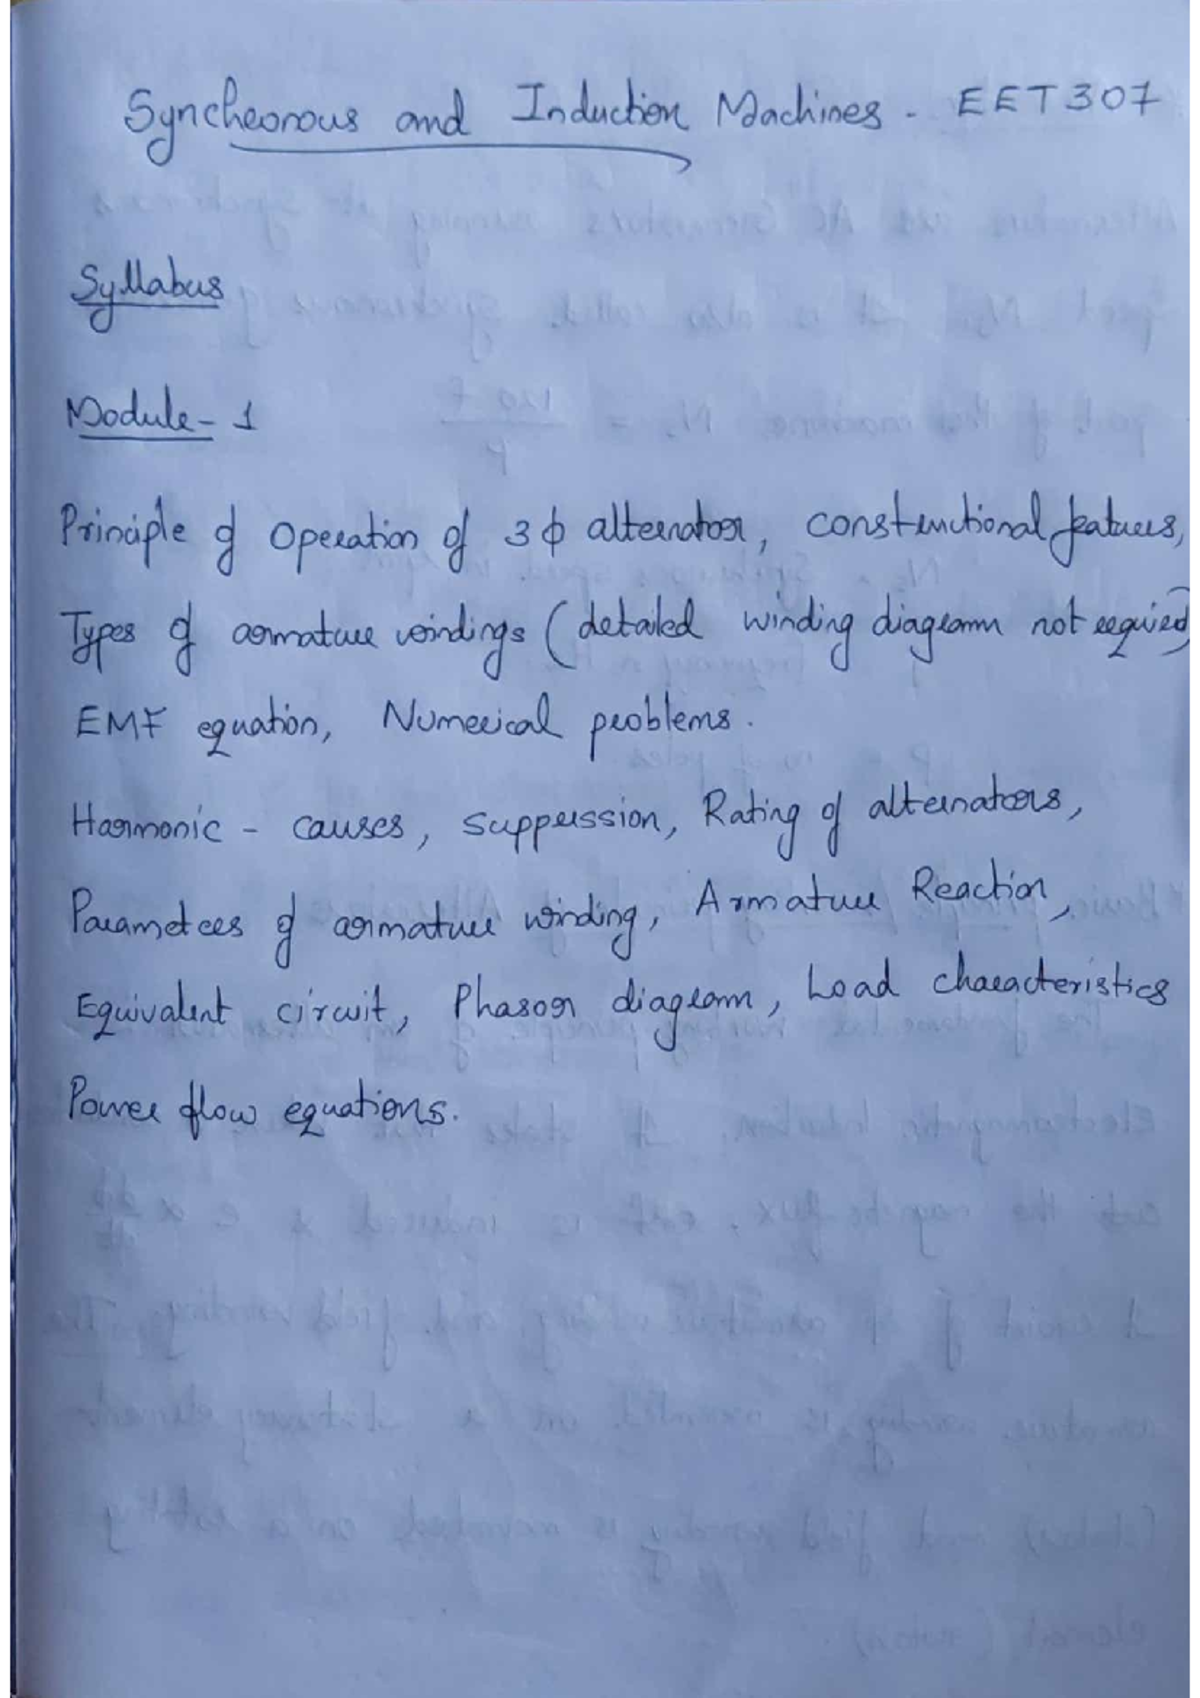 Synchronous and Induction Machines - EET307
Syllabus
Module - 1
Principle of Operation of 3ϕ alternator, constructional features,
Types of armature windings (detailed winding diagram not required)
EMF equation, Numerical problems.
Harmonic - causes, suppression, Rating of alternators,
Parameters of armature winding, Armature Reaction,
Equivalent circuit, Phasor diagram, Load characteristics
Power flow equations.